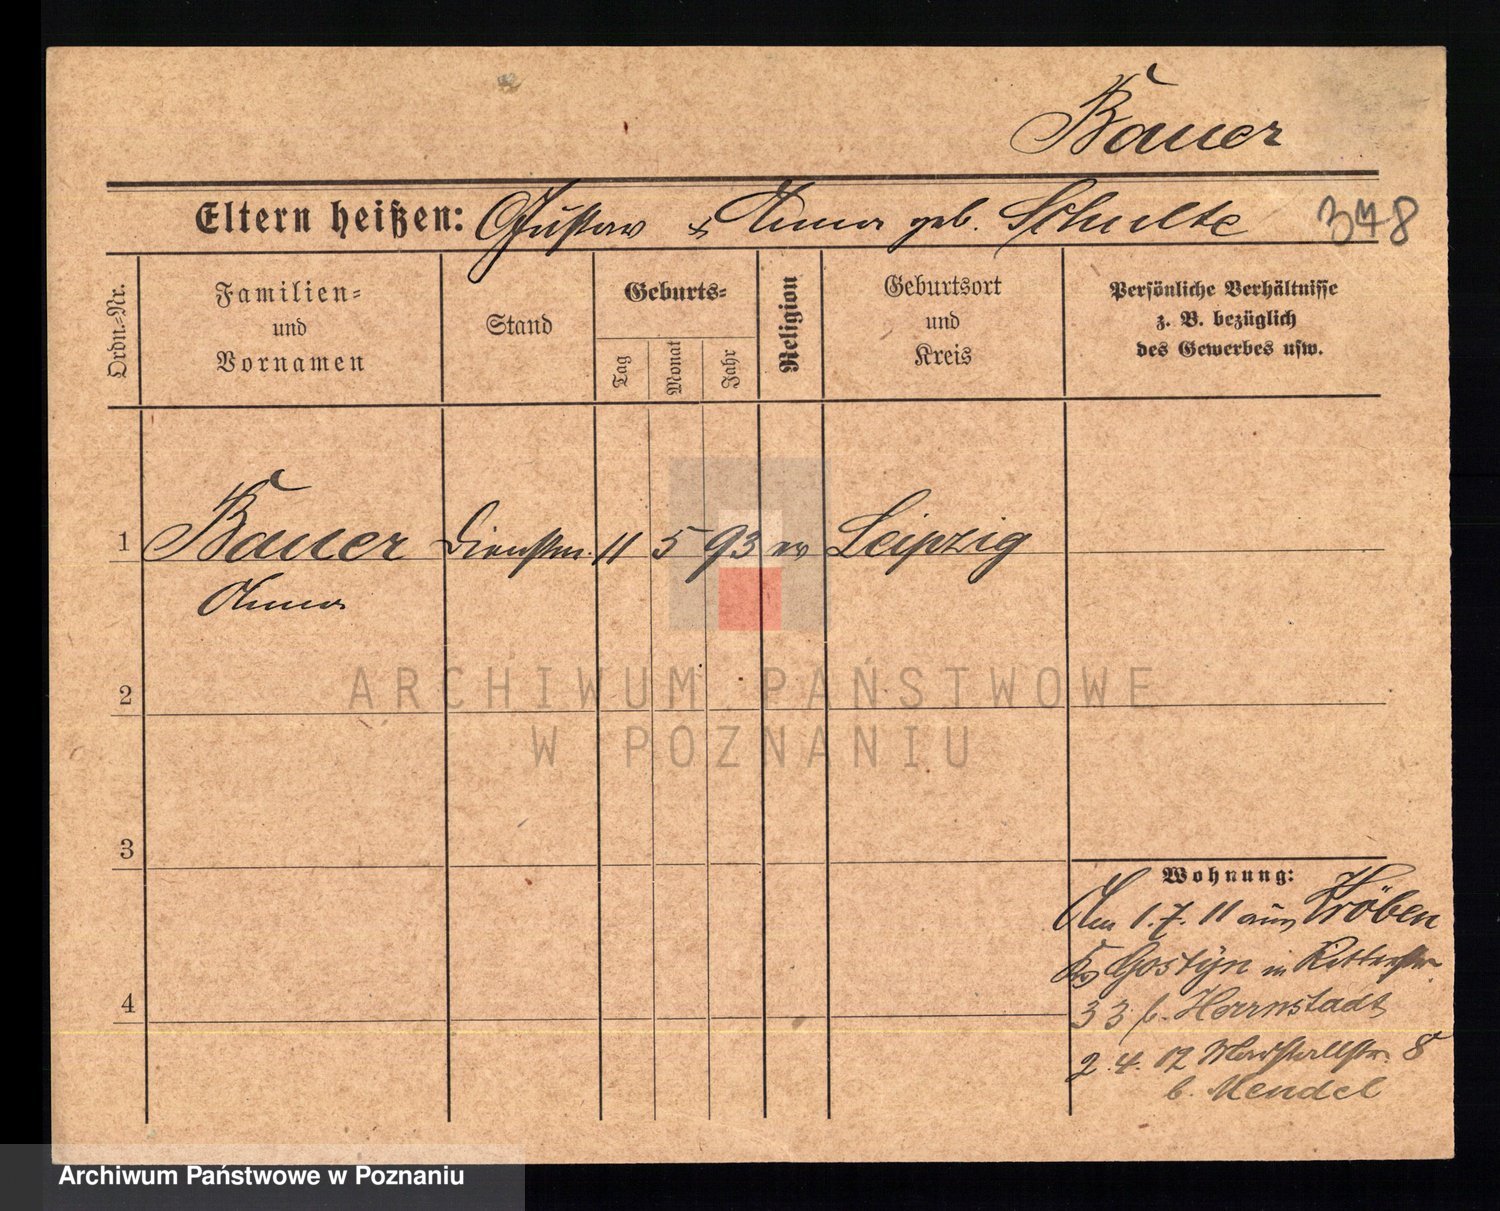 Bauer
Eltern heißen: Gustav & Anna geb. Schulte 378
Ordn.-Nr.
Familien-
und
Vornamen
Stand
Geburts-
Tag
Monat
Jahr
Religion
Geburtsort
und
Kreis
Persönliche Verhältnisse
z. B. bezüglich
des Gewerbes usw.
1 Bauer Dienstm. 11 5 93 ev Leipzig
Anna
2
3
4
Wohnung:
Am 1.7.11 aus Kröben
Ks Gostyn in Ritterstr.
33 b. Herrnstadt
2.4.12 Marstallstr. 8
b. Mendel
ARCHIWUM PAŃSTWOWE
W POZNANIU
Archiwum Państwowe w Poznaniu